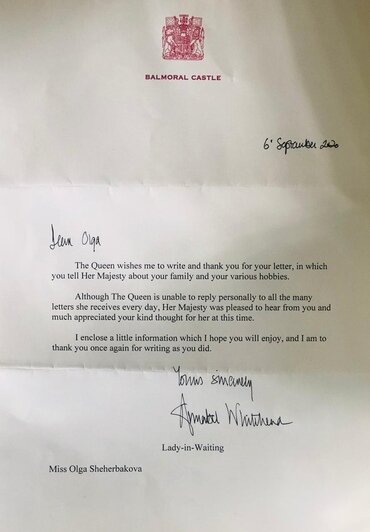 BALMORAL CASTLE
6th September 2020
Dear Olga
The Queen wishes me to write and thank you for your letter, in which
you tell Her Majesty about your family and your various hobbies.
Although The Queen is unable to reply personally to all the many
letters she receives every day, Her Majesty was pleased to hear from you and
much appreciated your kind thought for her at this time.
I enclose a little information which I hope you will enjoy, and I am to
thank you once again for writing as you did.
Yours sincerely
Annabel Whitehead
Lady-in-Waiting
Miss Olga Sheherbakova